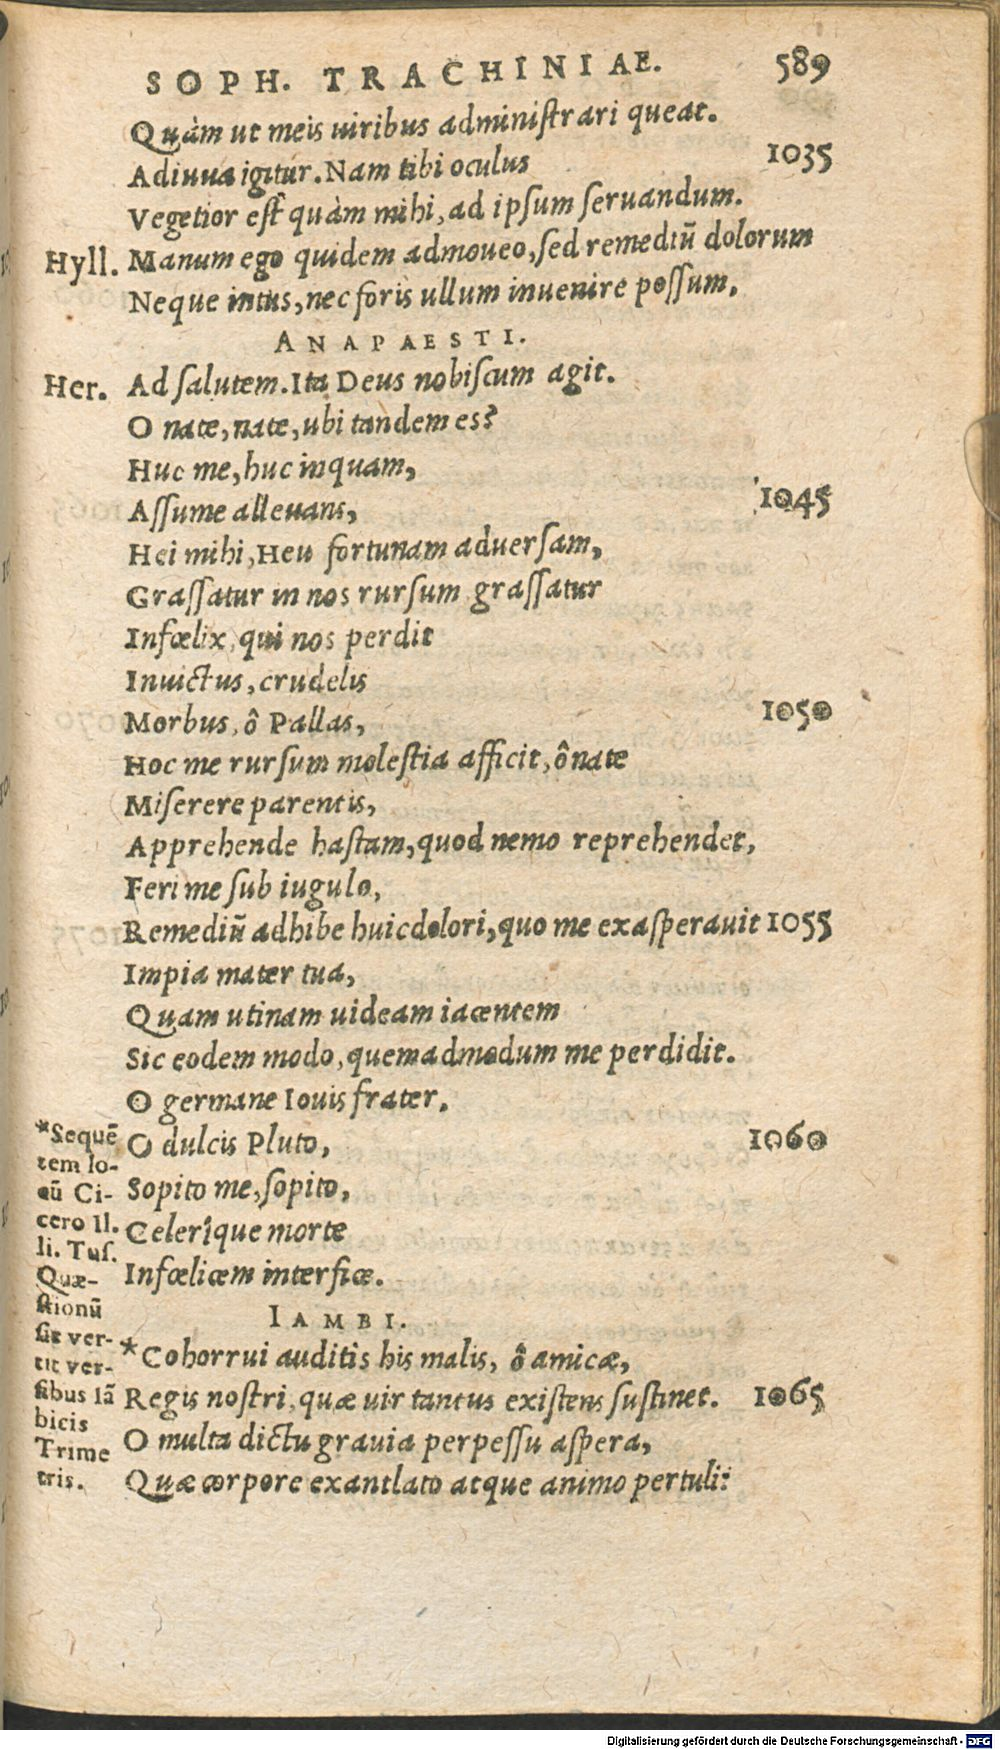 SOPH. TRACHINIAE. 589
Quàm ut meis uiribus administrari queat.
Adiuua igitur. Nam tibi oculus 1035
Vegetior est quàm mihi, ad ipsum seruandum.
Hyll. Manum ego quidem admoueo, sed remediũ dolorum
Neque intus, nec foris ullum inuenire possum.
ANAPAESTI.
Her. Ad salutem. Ita Deus nobiscum agit.
O nate, nate, ubi tandem es?
Huc me, huc inquam,
Assume alleuans, 1045
Hei mihi, Heu fortunam aduersam,
Grassatur in nos rursum grassatur
Infœlix, qui nos perdit
Inuictus, crudelis
Morbus, ô Pallas, 1050
Hoc me rursum molestia afficit, ô nate
Miserere parentis,
Apprehende hastam, quod nemo reprehendet,
Feri me sub iugulo,
Remediũ adhibe huic dolori, quo me exasperauit 1055
Impia mater tua,
Quam utinam uideam iacentem
Sic eodem modo, quemadmodum me perdidit.
O germane Iouis frater,
O dulcis Pluto, 1060
Sopito me, sopito,
Celerîque morte
Infœlicem interfice.
IAMBI.
*Cohorrui auditis his malis, ô amicæ,
Regis nostri, quæ uir tantus existens sustinet. 1065
O multa dictu grauia perpessu aspera,
Quæ corpore exantlato atque animo pertuli:
*Sequẽ
tem lo-
cũ Ci-
cero II.
li. Tus.
Quæ-
stionũ
sic ver-
tit ver-
sibus Iã
bicis
Trime
tris.
Digitalisierung gefördert durch die Deutsche Forschungsgemeinschaft - DFG